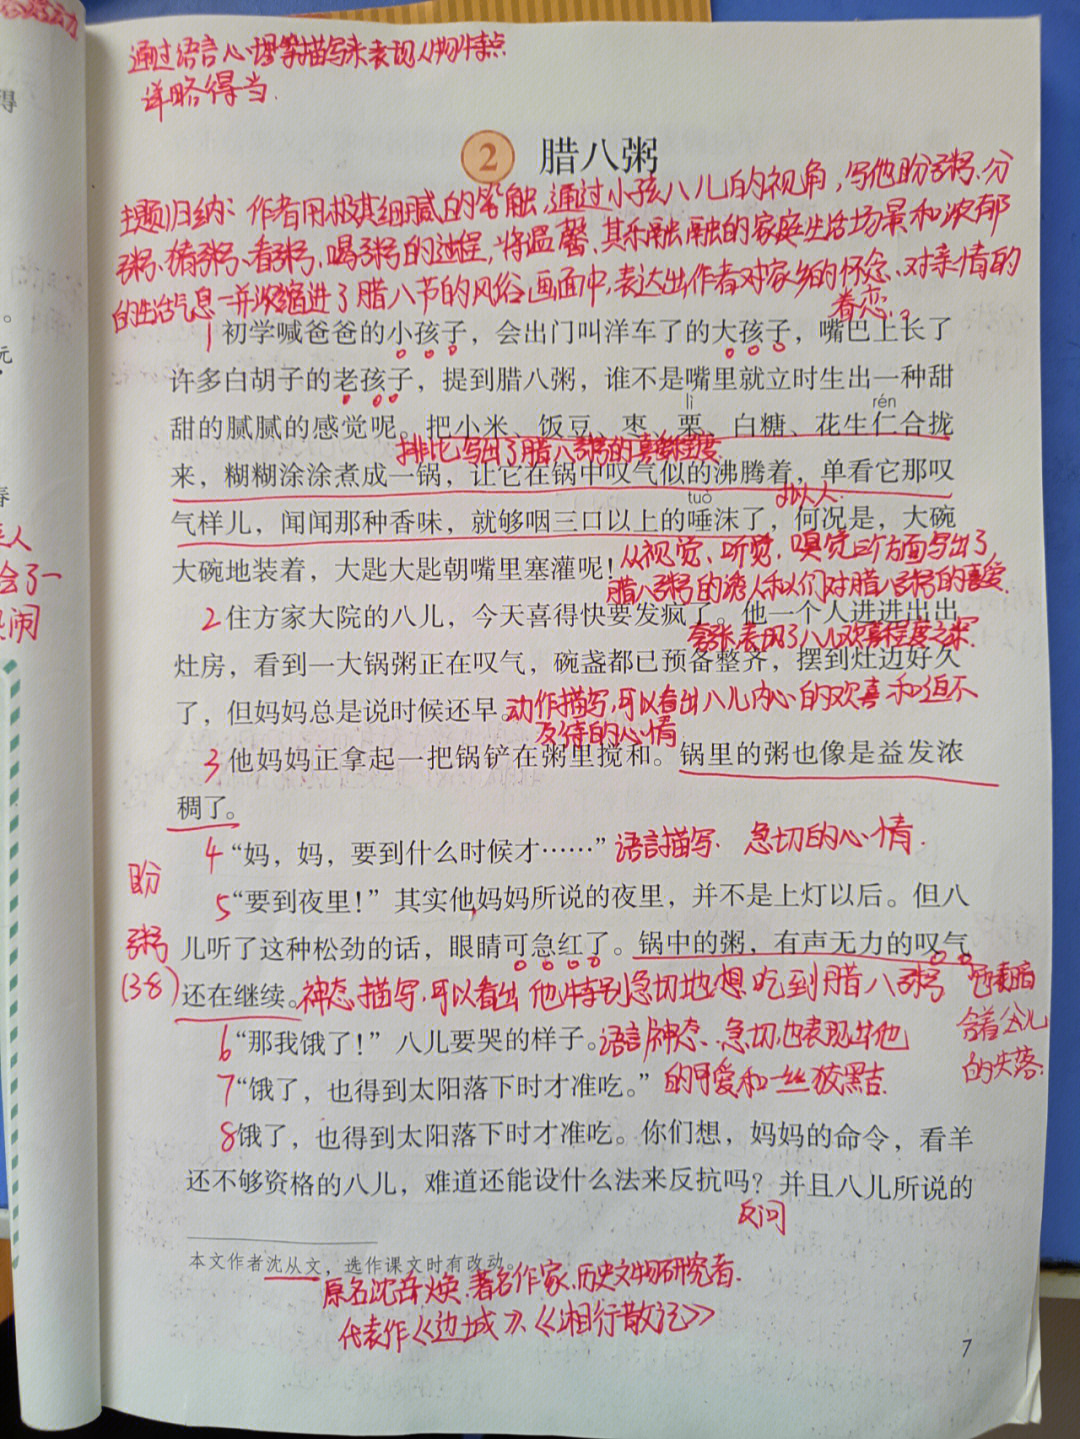 通过语言心理等描写来表现人物特点
详略得当.
2 腊八粥
主题归纳:作者用极其细腻的笔触,通过小孩八儿的视角,写他盼粥、分
粥、猜粥、看粥、喝粥的过程,将温馨、其乐融融的家庭生活场景和浓郁
的生活气息一并浓缩进了腊八节的风俗画面中,表达出作者对家乡的怀念、对亲情的
眷恋。
1 初学喊爸爸的小孩子,会出门叫洋车了的大孩子,嘴巴上长了
许多白胡子的老孩子,提到腊八粥,谁不是嘴里就立时生出一种甜
lì rén
甜的腻腻的感觉呢。把小米、饭豆、枣、栗、白糖、花生仁合拢
排比,写出了腊八粥的喜爱程度
来,糊糊涂涂煮成一锅,让它在锅中叹气似的沸腾着,单看它那叹
tuò
拟人.
气样儿,闻闻那种香味,就够咽三口以上的唾沫了,何况是,大碗
大碗地装着,大匙大匙朝嘴里塞灌呢!
从视觉、听觉、嗅觉三个方面写出了
腊八粥的诱人和人们对腊八粥的喜爱.
2 住方家大院的八儿,今天喜得快要发疯了。他一个人进进出出
夸张,表现了八儿欢喜程度之深.
灶房,看到一大锅粥正在叹气,碗盏都已预备整齐,摆到灶边好久
了,但妈妈总是说时候还早。
动作描写,可以看出八儿内心的欢喜和迫不
及待的心情
3 他妈妈正拿起一把锅铲在粥里搅和。锅里的粥也像是益发浓
稠了。
4 “妈,妈,要到什么时候才……”
语言描写. 急切的心情.
盼
粥
(3-8)
5 “要到夜里!”其实他妈妈所说的夜里,并不是上灯以后。但八
儿听了这种松劲的话,眼睛可急红了。锅中的粥,有声无力的叹气
还在继续。
神态描写,可以看出他特别急切地想吃到腊八粥
暗
含着八儿
的失落.
6 “那我饿了!”八儿要哭的样子。
语言神态、急切,也表现出他
7 “饿了,也得到太阳落下时才准吃。”
的可爱和一丝狡黠.
8 饿了,也得到太阳落下时才准吃。你们想,妈妈的命令,看羊
还不够资格的八儿,难道还能设什么法来反抗吗?并且八儿所说的
反问
本文作者沈从文,选作课文时有改动。
原名沈岳焕.著名作家、历史文物研究者.
代表作《边城》、《湘行散记》
7
得
。
元
春
人
会了一
闹